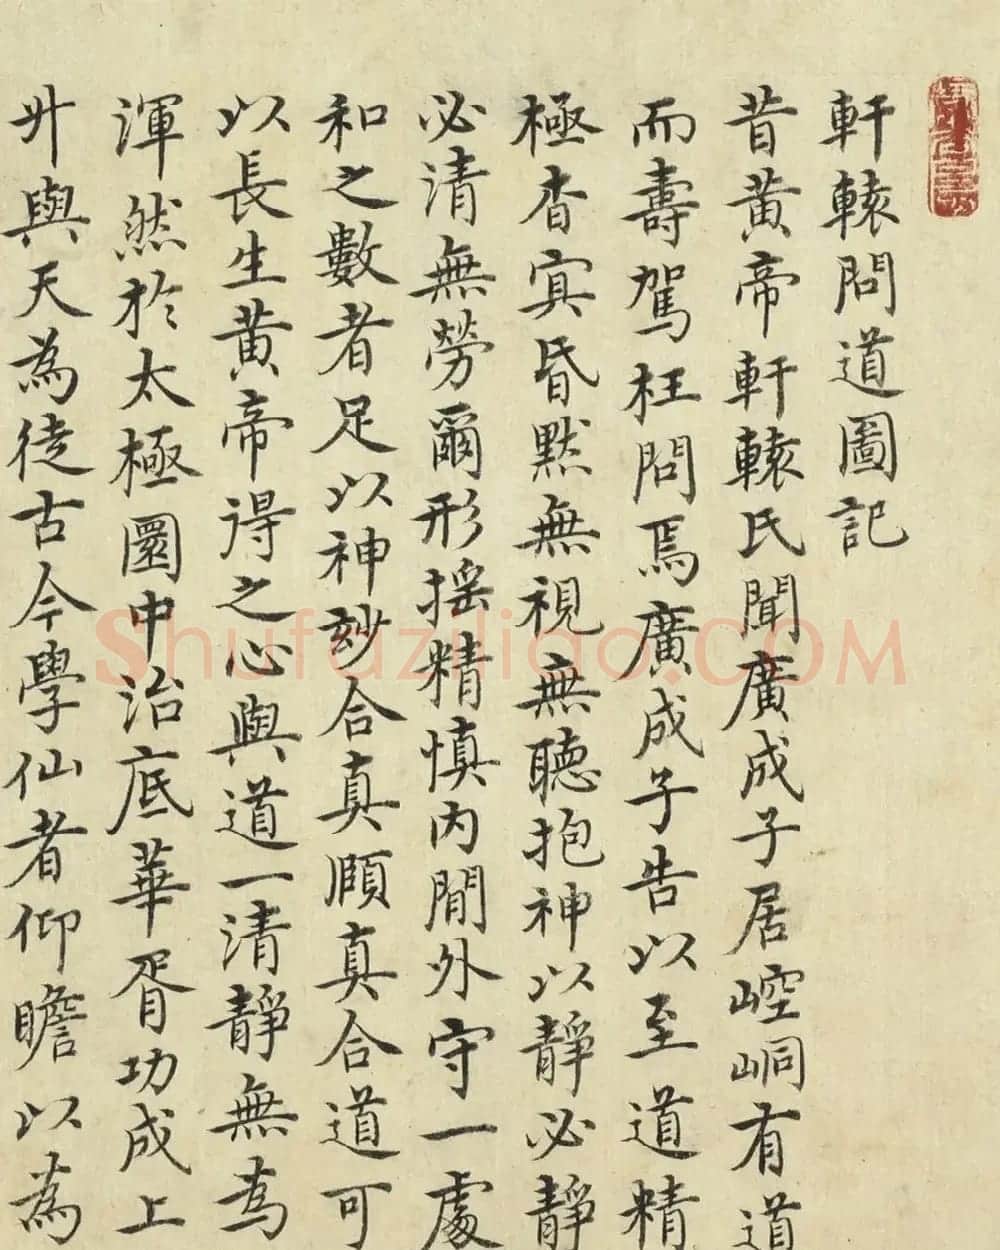 軒轅問道圖記
昔黃帝軒轅氏聞廣成子居崆峒有道
而壽駕枉問焉廣成子告以至道精
極杳冥昏默無視無聽抱神以靜必靜
必清無勞爾形搖精慎內閒外守一處
和之數者足以神玅合真頋真合道可
以長生黃帝得之心與道一清靜無為
渾然於太極圜中治底華胥功成上
升與天為徒古今學仙者仰瞻以為
Shufaziliao.COM